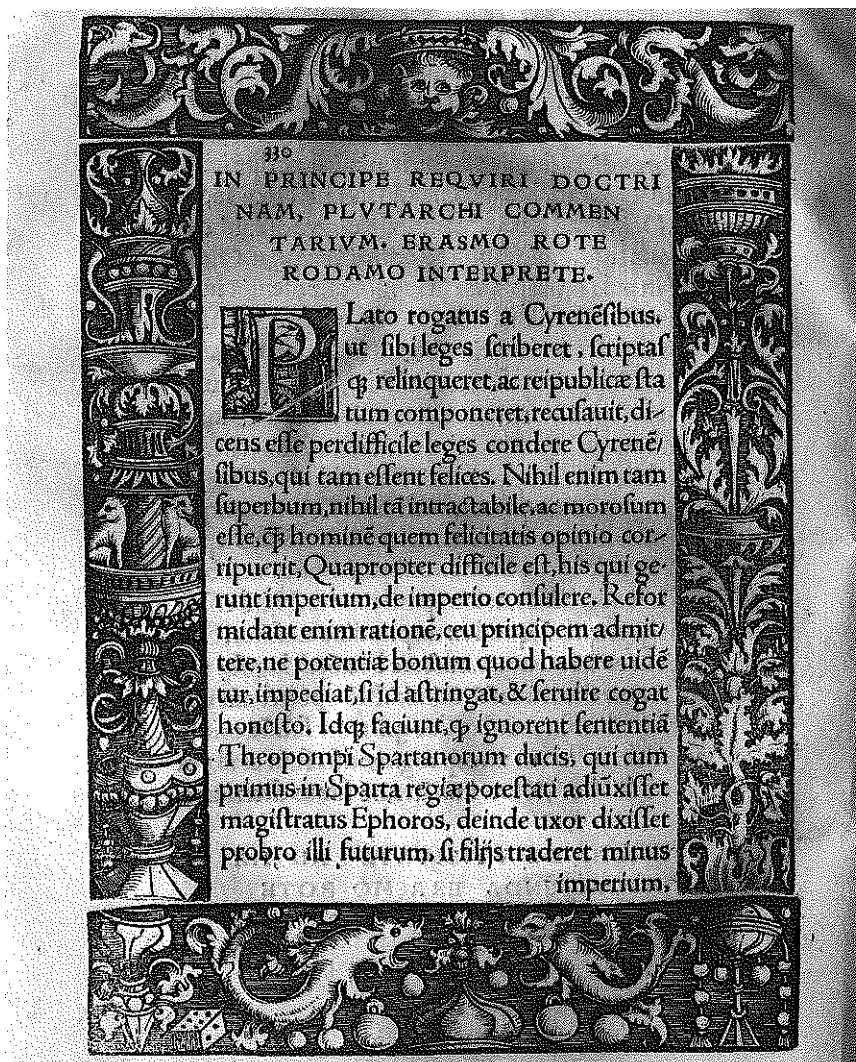 330
IN PRINCIPE REQVIRI DOCTRI
NAM, PLVTARCHI COMMEN
TARIVM. ERASMO ROTE
RODAMO INTERPRETE.
PLato rogatus a Cyrenēſibus,
ut ſibi leges ſcriberet, ſcriptaſ
qꝫ relinqueret, ac reipublicæ ſta
tum componeret, recuſauit, di-
cens eſſe perdifficile leges condere Cyrenē/
ſibus, qui tam eſſent felices. Nihil enim tam
ſuperbum, nihil tā intractabile, ac moroſum
eſſe, q̄ꝫ hominē quem felicitatis opinio cor-
ripuerit, Quapropter difficile eſt, his qui ge-
runt imperium, de imperio conſulere. Refor
midant enim rationē, ceu principem admit/
tere, ne potentiæ bonum quod habere uidē
tur, impediat, ſi id aſtringat, & ſeruire cogat
honeſto. Idqꝫ faciunt, ꝙ ignorent ſententiā
Theopompi Spartanorum ducis, qui cum
primus in Sparta regiæ poteſtati adiūxiſſet
magiſtratus Ephoros, deinde uxor dixiſſet
probro illi futurum, ſi filijs traderet minus
imperium,